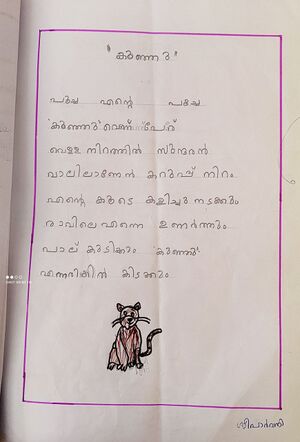 " കുഞ്ഞു "
പൂച്ച എന്റെ പൂച്ച
'കുഞ്ഞു' വെണ് പേര്
വെള്ള നിറത്തിൽ സുന്ദരൻ
വാലിലാണേൻ കറുപ്പ് നിറം
എന്റെ കൂടെ കളിച്ചു നടക്കും
രാവിലെ എന്നെ ഉണർത്തും
പാല് കുടിക്കും 'കുഞ്ഞു'
എന്നരികിൽ കിടക്കും
ശ്രീപാർവതി